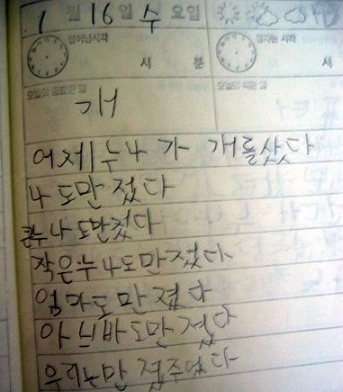 1 월 16 일 수 요일
일어난시각 잠자는 시각
시 분 시
오늘의 중요한 일 오늘의 착한 일
개
어제 누나 가 개를샀다
나 도만 졌다
큰누나 도만졌다
작은누나도만졌다
엄마도 만 졌다
아브바도만 졌다
우리는만 져주었다